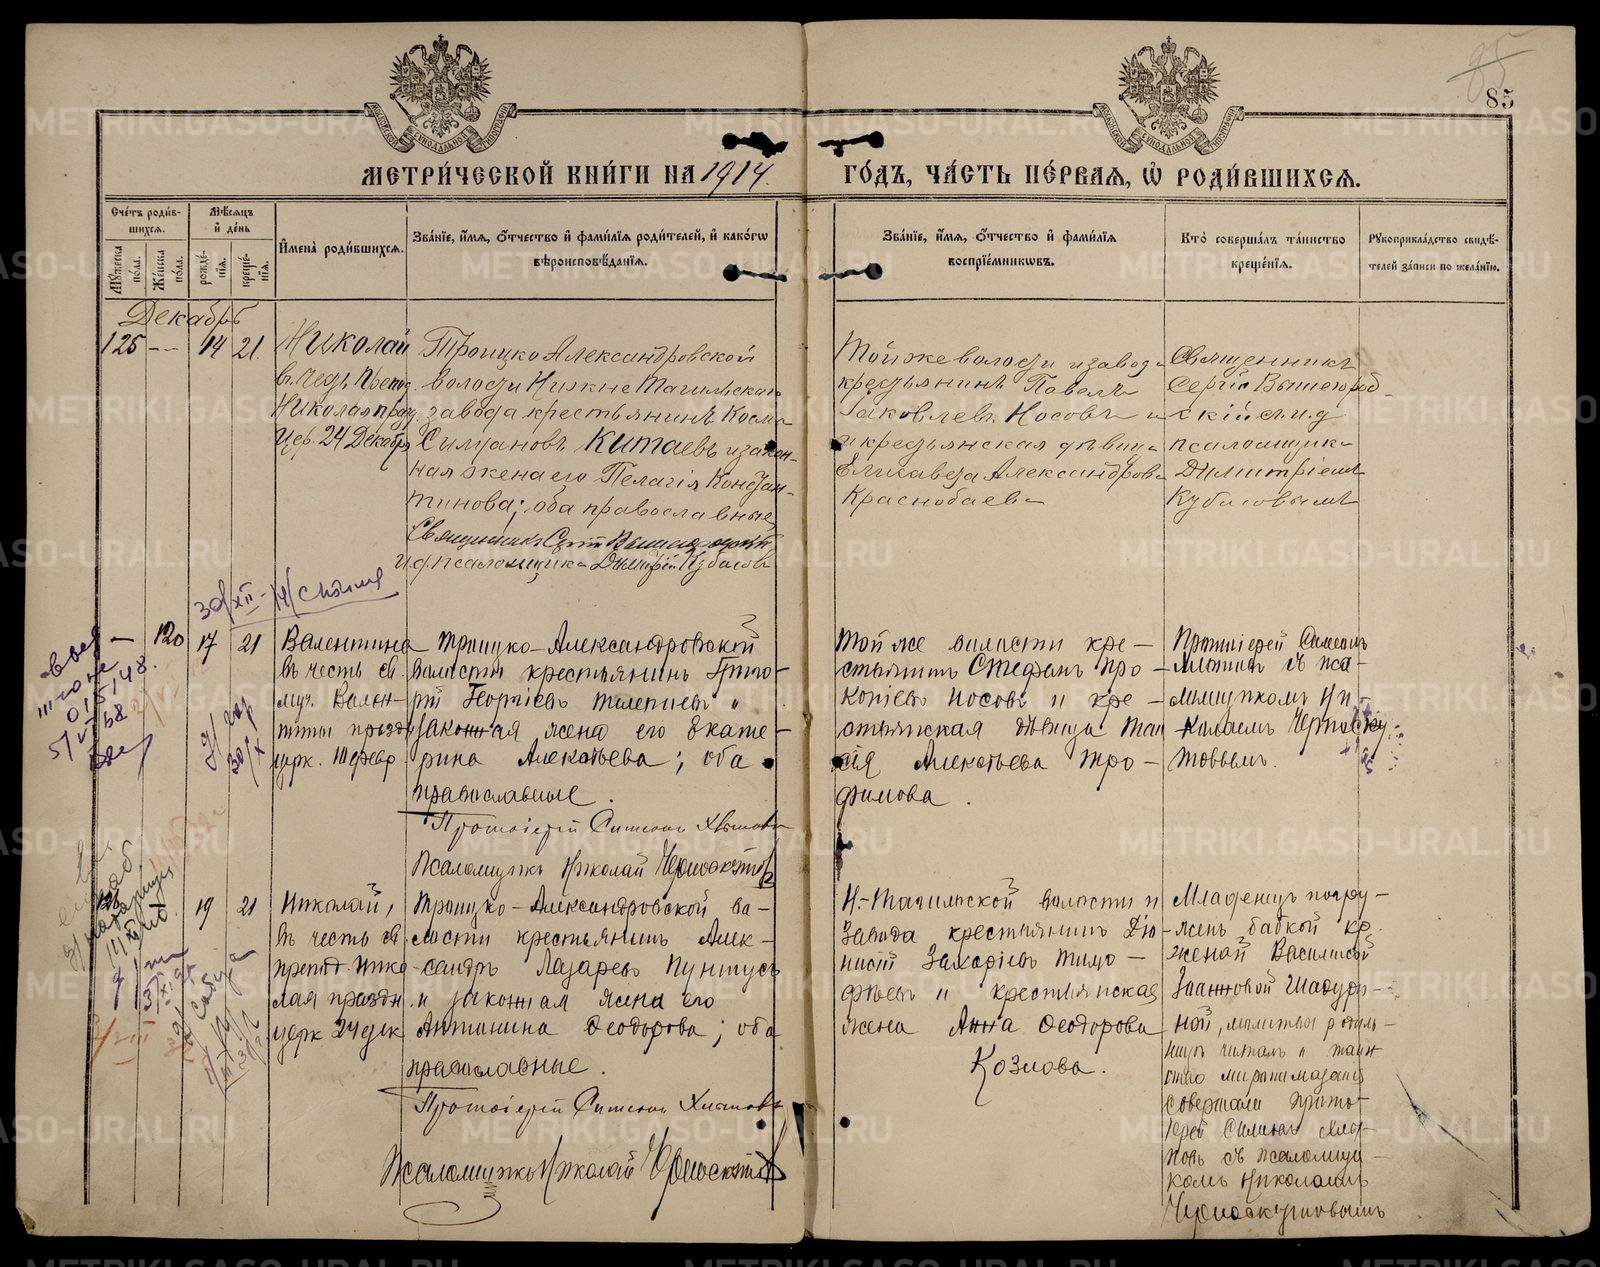 85
85
МЕТРИ́ЧЕСКОЙ КНИ́ГИ НА 1914 ГО́ДЪ, ЧА́СТЬ ПЕ́РВАЯ, Ѡ҆ РОДИ́ВШИХСЯ.
Сче́тъ роди́в-
шихся.
Му́жеска по́ла.
Же́нска по́ла.
Мѣ́сяцъ
и҆ де́нь
рожде́-
нїя.
креще́-
нїя.
И҆мена̀ роди́вшихся.
Зва́нїе, и҆́мя, о҆́тчество и҆ фами́лїя роди́телей, и҆ како́гѡ
вѣроисповѣ́данїя.
Зва́нїе, и҆́мя, о҆́тчество и҆ фами́лїя
воспрїе́мникѡвъ.
Кто̀ соверша́лъ та́инство
креще́нїя.
Рукоприкла́дство свидѣ́-
телей за́писи по жела́нїю.
Декабрь
125 -- 14 21
Николай
въ честь Препод.
Николая празд.
Цер. 24 Декабря
Троицко Александровской
волости Нижне Тагильскаго
завода крестьянинъ Косма
Силуановъ Китаевъ и закон-
ная жена его Пелагія Констан-
тинова; оба православные
Священникъ Сергій Вышегородскій
и. д. псаломщика Димитрій Кубасовъ
Той же волости и завода
крестьянинъ Павелъ
Іаковлевъ Носовъ и
и крестьянская дѣвица
Елизавета Александрова
Краснобаева
Священникъ
Сергій Вышегород-
скій съ и. д.
псаломщика
Димитріемъ
Кубасовымъ
30/XII-14
— 120 17 21
Валентина
въ честь св.
муч. Вален-
тины праздн.
церк. 10 февр
Троицко-Александровской
волости крестьянинъ Григо-
рій Георгіевъ и
законная жена его Екате-
рина Алексѣева; оба
православные.
Протоіерей Симеонъ Хлыновъ
Псаломщикъ Николай Черноскутовъ
Той же волости кре-
стьянинъ Стефанъ Про-
копіевъ Носовъ и кре-
стьянская дѣвица Таи-
сія Алексѣева Тро-
фимова.
Протоіерей Симеонъ
Хлыновъ съ пса-
ломщикомъ Ни-
колаемъ Черноску-
товымъ.
126 19 21
Николай,
въ честь св.
препод. Нико-
лая праздн.
церк 24 дек
Троицко-Александровской во-
лости крестьянинъ Алек-
сандръ Лазаревъ Пунтусъ
и законная жена его
Антонина Ѳеодорова; оба
православные.
Протоіерей Симеонъ Хлыновъ
Псаломщикъ Николай Черноскутовъ
Н.-Тагильской волости и
завода крестьянинъ Діо-
нисій Захаріевъ Тимо-
фѣевъ и крестьянская
жена Анна Ѳеодорова
Козлова.
Младенецъ погру-
женъ бабкой кр.
женой Василисой
Іоанновой
ной, молитвы родиль-
ницѣ читалъ и таин-
ство миропомазанія
совершалъ Прото-
іерей Симеонъ Хлы-
новъ съ псаломщи-
комъ Николаемъ
Черноскутовымъ